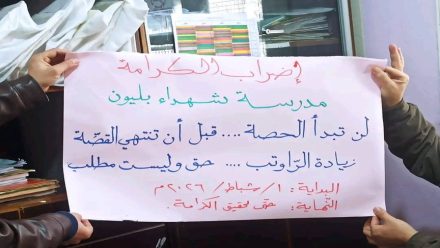 إضراب الكرامة
مدرسة شهداء بليون
لن تبدأ الحصة .... قبل أن تنتهي القصّة
زيادة الرّاوتب .... حق وليست مطلب
البداية: ١/ شباط/ ٢٠٢٦ م
النّهاية: حتى تحقيق الكرامة.